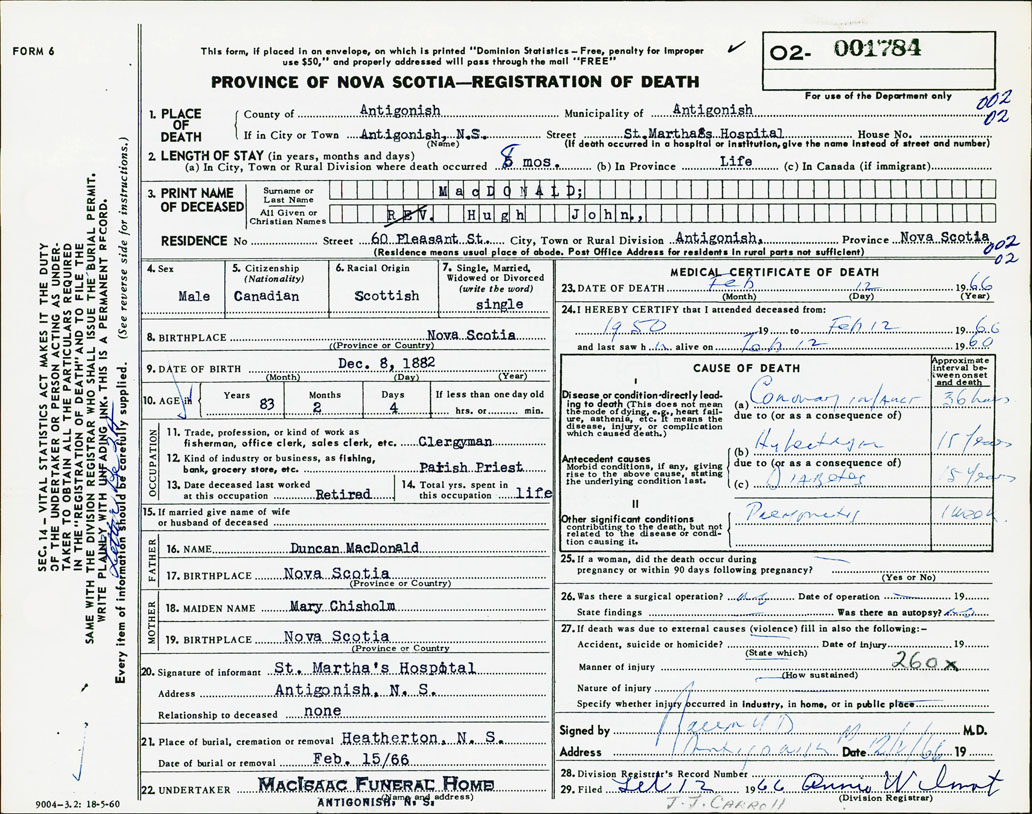 FORM 6
This form, if placed in an envelope, on which is printed "Dominion Statistics – Free, penalty for improper
use $50," and properly addressed will pass through the mail "FREE"
O2- 001784
For use of the Department only
PROVINCE OF NOVA SCOTIA—REGISTRATION OF DEATH
002
02
1. PLACE OF DEATH
County of Antigonish Municipality of Antigonish
If in City or Town Antigonish, N.S. Street St.Martha's Hospital House No.
(Name) (If death occurred in a hospital or institution, give the name instead of street and number)
2. LENGTH OF STAY (in years, months and days)
(a) In City, Town or Rural Division where death occurred mos. (b) In Province Life (c) In Canada (if immigrant)
3. PRINT NAME OF DECEASED
Surname or Last Name MacDONALD;
All Given or Christian Names REV. Hugh John.,
RESIDENCE No Street 60 Pleasant St. City, Town or Rural Division Antigonish, Province Nova Scotia
(Residence means usual place of abode. Post Office Address for residents in rural parts not sufficient)
002
02
4. Sex
Male
5. Citizenship
(Nationality)
Canadian
6. Racial Origin
Scottish
7. Single, Married,
Widowed or Divorced
(write the word)
single
8. BIRTHPLACE Nova Scotia
((Province or Country)
9. DATE OF BIRTH Dec. 8, 1882
(Month) (Day) (Year)
10. AGE Years 83 Months 2 Days 4 If less than one day old
hrs. or min.
OCCUPATION
11. Trade, profession, or kind of work as
fisherman, office clerk, sales clerk, etc. Clergyman
12. Kind of industry or business, as fishing,
bank, grocery store, etc. Parish Priest
13. Date deceased last worked
at this occupation Retired
14. Total yrs. spent in
this occupation life
15. If married give name of wife
or husband of deceased
FATHER
16. NAME Duncan MacDonald
17. BIRTHPLACE Nova Scotia
(Province or Country)
MOTHER
18. MAIDEN NAME Mary Chisholm
19. BIRTHPLACE Nova Scotia
(Province or Country
20. Signature of informant St. Martha's Hospital
Address Antigonish, N. S.
Relationship to deceased none
21. Place of burial, cremation or removal Heatherton, N. S.
Date of burial or removal Feb. 15/66
22. UNDERTAKER MacIsaac Funeral Home
(Name and address)
ANTIGONISH, N. S.
MEDICAL CERTIFICATE OF DEATH
23. DATE OF DEATH Feb 12 1966
(Month) (Day) (Year)
24. I HEREBY CERTIFY that I attended deceased from:
1950 19 to Feb 12 1966
and last saw h alive on Feb 12 19
CAUSE OF DEATH
Approximate interval between onset and death
I
Disease or condition directly leading to death (This does not mean the mode of dying, e.g., heart failure, asthenia, etc. It means the disease, injury, or complication which caused death.)
(a) Coronary infarct 36 hours
due to (or as a consequence of)
Antecedent causes
Morbid conditions, if any, giving rise to the above cause, stating the underlying condition last.
(b) 15 years
due to (or as a consequence of)
(c) Diabetes 15 years
II
Other significant conditions
contributing to the death, but not related to the disease or condition causing it.
1 week
25. If a woman, did the death occur during
pregnancy or within 90 days following pregnancy?
(Yes or No)
26. Was there a surgical operation? Date of operation 19
State findings Was there an autopsy?
27. If death was due to external causes (violence) fill in also the following:–
Accident, suicide or homicide? Date of injury 19
(State which)
260x
Manner of injury
(How sustained)
Nature of injury
Specify whether injury occurred in industry, in home, or in public place
Signed by M.D.
Address Antigonish Date 12/2/66 19
28. Division Registrar's Record Number
29. Filed 12 1966 Annie Wilmot
(Division Registrar)
J.J. CARROLL
SEC. 14 – VITAL STATISTICS ACT MAKES IT THE DUTY
OF THE UNDERTAKER OR PERSON ACTING AS UNDER-
TAKER TO OBTAIN ALL THE PARTICULARS REQUIRED
IN THE "REGISTRATION OF DEATH" AND TO FILE THE
SAME WITH THE DIVISION REGISTRAR WHO SHALL ISSUE THE BURIAL PERMIT.
WRITE PLAINLY WITH UNFADING INK. THIS IS A PERMANENT RECORD.
Every item of information should be carefully supplied. (See reverse side for instructions.)
9004–3.2: 18-5-60